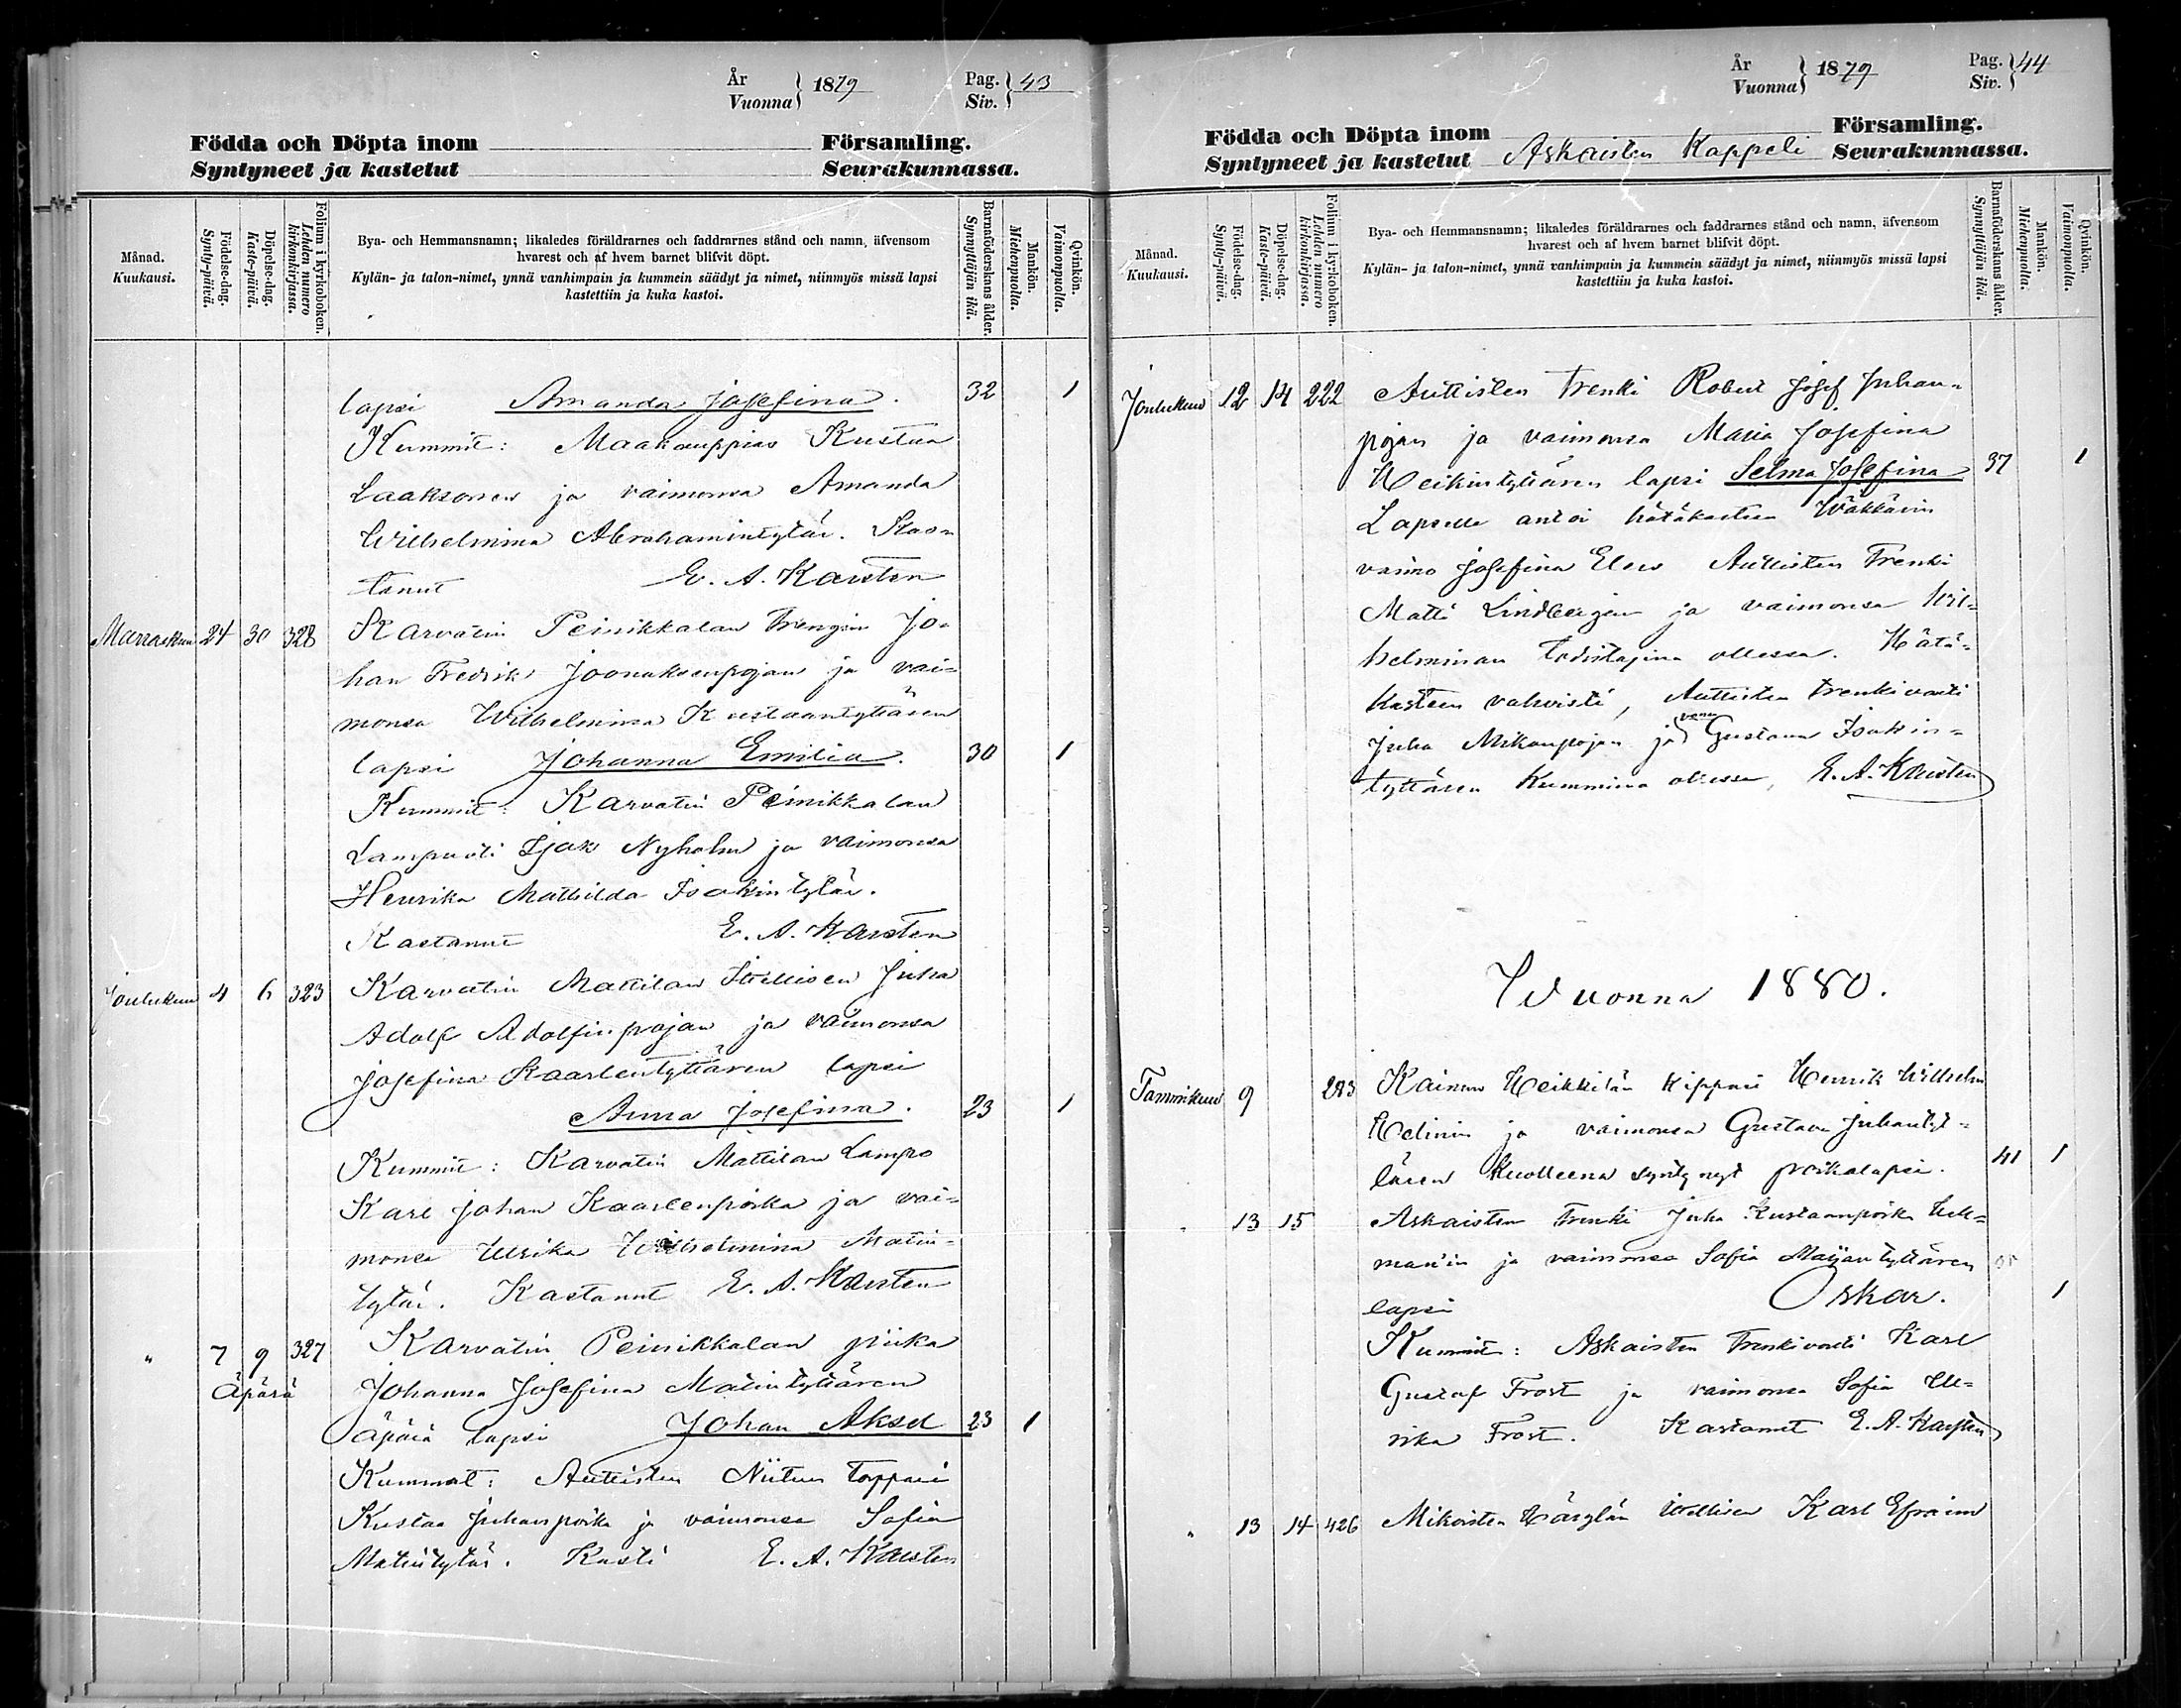 År
Vuonna } 1879
Pag.
Siv. } 43
Födda och Döpta inom Församling.
Syntyneet ja kastetut Seurakunnassa.
Månad.
Kuukausi.
Födelse-dag.
Synty-päivä.
Döpelse-dag.
Kaste-päivä.
Folium i kyrkoboken.
Lehden numero kirkonkirjassa.
Bya- och Hemmansnamn; likaledes föräldrarnes och faddrarnes stånd och namn, äfvensom
hvarest och af hvem barnet blifvit döpt.
Kylän- ja talon-nimet, ynnä vanhimpain ja kummein säädyt ja nimet, niinmyös missä lapsi
kastettiin ja kuka kastoi.
Barnaföderskans ålder.
Synnyttäjän ikä.
Mankön.
Miehenpuolta.
Qvinkön.
Vaimonpuolta.
lapsi Amanda Josefina. 32 1
Kummit: Maakauppias Kustaa
Laaksonen ja vaimonsa Amanda
Wilhelmina Abrahamintytär. Kas=
tanut E. A. Karsten
Marraskuu 24 30 328 Karvatin Peinikkalan trengin Jo=
han Fredrik Joonaksenpojan ja vai=
monsa Wilhelmina Kustaantyttären
lapsi Johanna Emilia. 30 1
Kummit: Karvatin Peinikkalan
Lampuoti Isak Nyholm ja vaimonsa
Henrika Mathilda Isakintytär.
Kastanut E. A. Karsten
Joulukuu 4 6 323 Karvatin Mattilan Itellisen Juha
Adolf Adolfinpojan ja vaimonsa
Josefina Kaarlentyttären lapsi
Anna Josefina. 23 1
Kummit: Karvatin Mattilan Lampo
Karl Johan Kaarlenpoika ja vai=
monsa Ulrika Wilhelmina Matin=
tytär. Kastanut E. A. Karsten
" 7 9 327 Karvatin Peinikkalan piika
Äpärä Johanna Josefina Matintyttären
äpärä lapsi Johan Aksel 23 1
Kummat: Auttisten Niitun torppari
Kustaa Juhanpoika ja vaimonsa Sofia
Matintytär. Kasti E. A. Karsten
År
Vuonna } 1879
Pag.
Siv. } 44
Födda och Döpta inom Församling.
Syntyneet ja kastetut Askaisten Kappeli Seurakunnassa.
Månad.
Kuukausi.
Födelse-dag.
Synty-päivä.
Döpelse-dag.
Kaste-päivä.
Folium i kyrkoboken.
Lehden numero kirkonkirjassa.
Bya- och Hemmansnamn; likaledes föräldrarnes och faddrarnes stånd och namn, äfvensom
hvarest och af hvem barnet blifvit döpt.
Kylän- ja talon-nimet, ynnä vanhimpain ja kummein säädyt ja nimet, niinmyös missä lapsi
kastettiin ja kuka kastoi.
Barnaföderskans ålder.
Synnyttäjän ikä.
Mankön.
Miehenpuolta.
Qvinkön.
Vaimonpuolta.
Joulukuu 12 14 222 Auttisten trenki Robert Josef Juhan=
pojan ja vaimonsa Maria Josefina
Heikintyttären lapsi Selma Josefina 37 1
Lapselle antoi hätäkasteen
vaimo Josefina Auttisten trenki
Matti Lindbergin ja vaimonsa Wil=
helminan todistajina ollessa. Hätä=
kasteen vahvisti, Auttisten trenkivouti
Juha Mikonpojan ja vmon Gustava Isakin=
tyttären Kummina ollessa, E. A. Karsten
Wuonna 1880.
Tammikuu 9 283 Kainun Heikkilän kippari Henrik Wilhelm
Helinin ja vaimonsa Gustava Juhantyt=
tären kuolleena syntynyt poikalapsi. 41 1
" 13 15 Askaisten trenki Juha Kustaanpoika Ek=
man'in ja vaimonsa Sofia Maijantyttären
lapsi Oskar. 1
Kummit: Askaisten trenkivouti Karl
Gustaf Frost ja vaimonsa Sofia Ul=
rika Frost. Kastanut E. A. Karsten
" 13 14 426 Mikoisten itellisen Karl Efraim